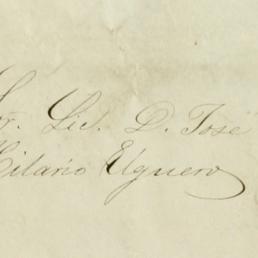 Sr. Lic. D. José
Hilario Elguero